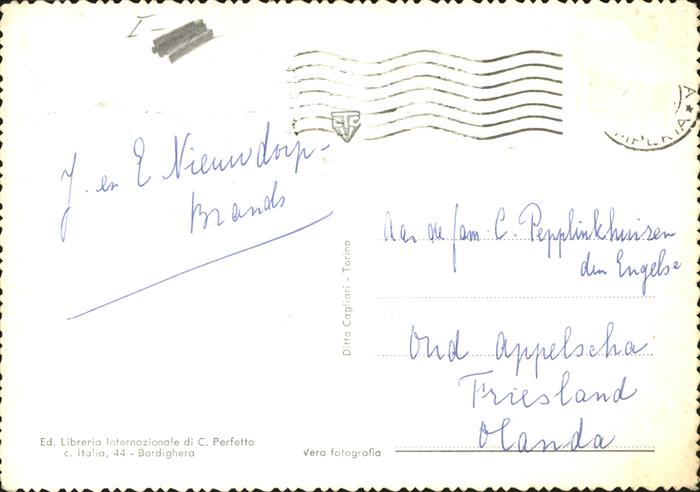 I-
ETC
IMPERIA * A
J. en E Nieuwdorp-
Brands
Aan de fam. C. Pepplinkhuizen
den Engelse
Oud Appelscha
Friesland
Olanda
Ditta Cagliari - Torino
Ed. Libreria Internazionale di C. Perfetto
c. Italia, 44 - Bordighera
Vera fotografia